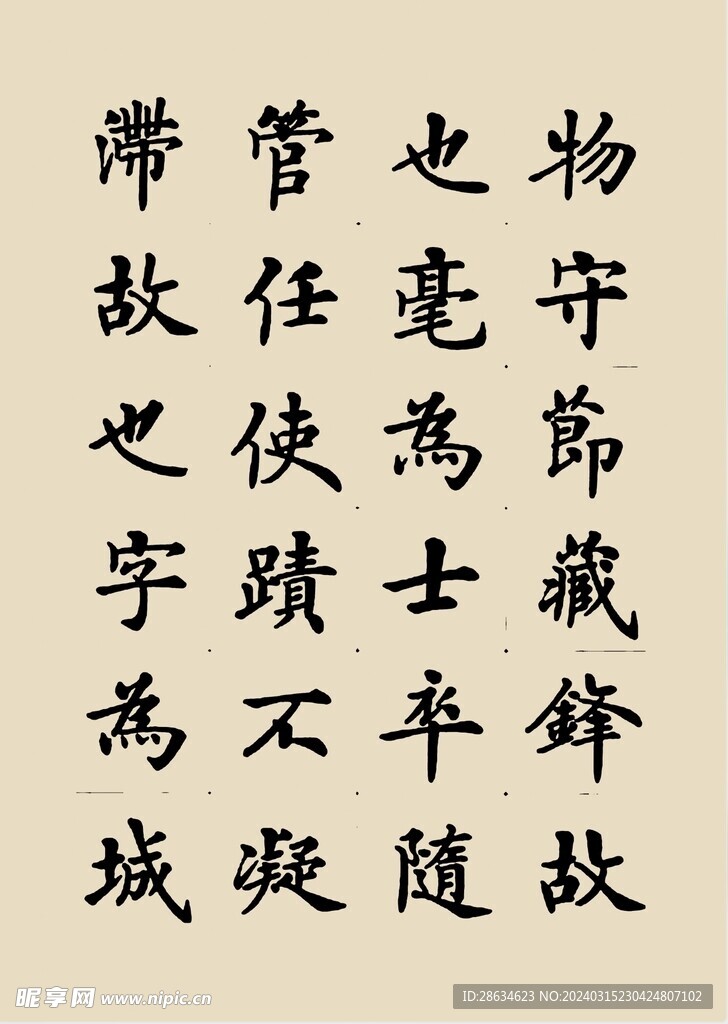 物守節藏鋒故
也毫為士卒隨
管任使蹟不凝
滯故也字為城
昵享网 www.nipic.cn
ID:28634623 NO:20240315230424807102